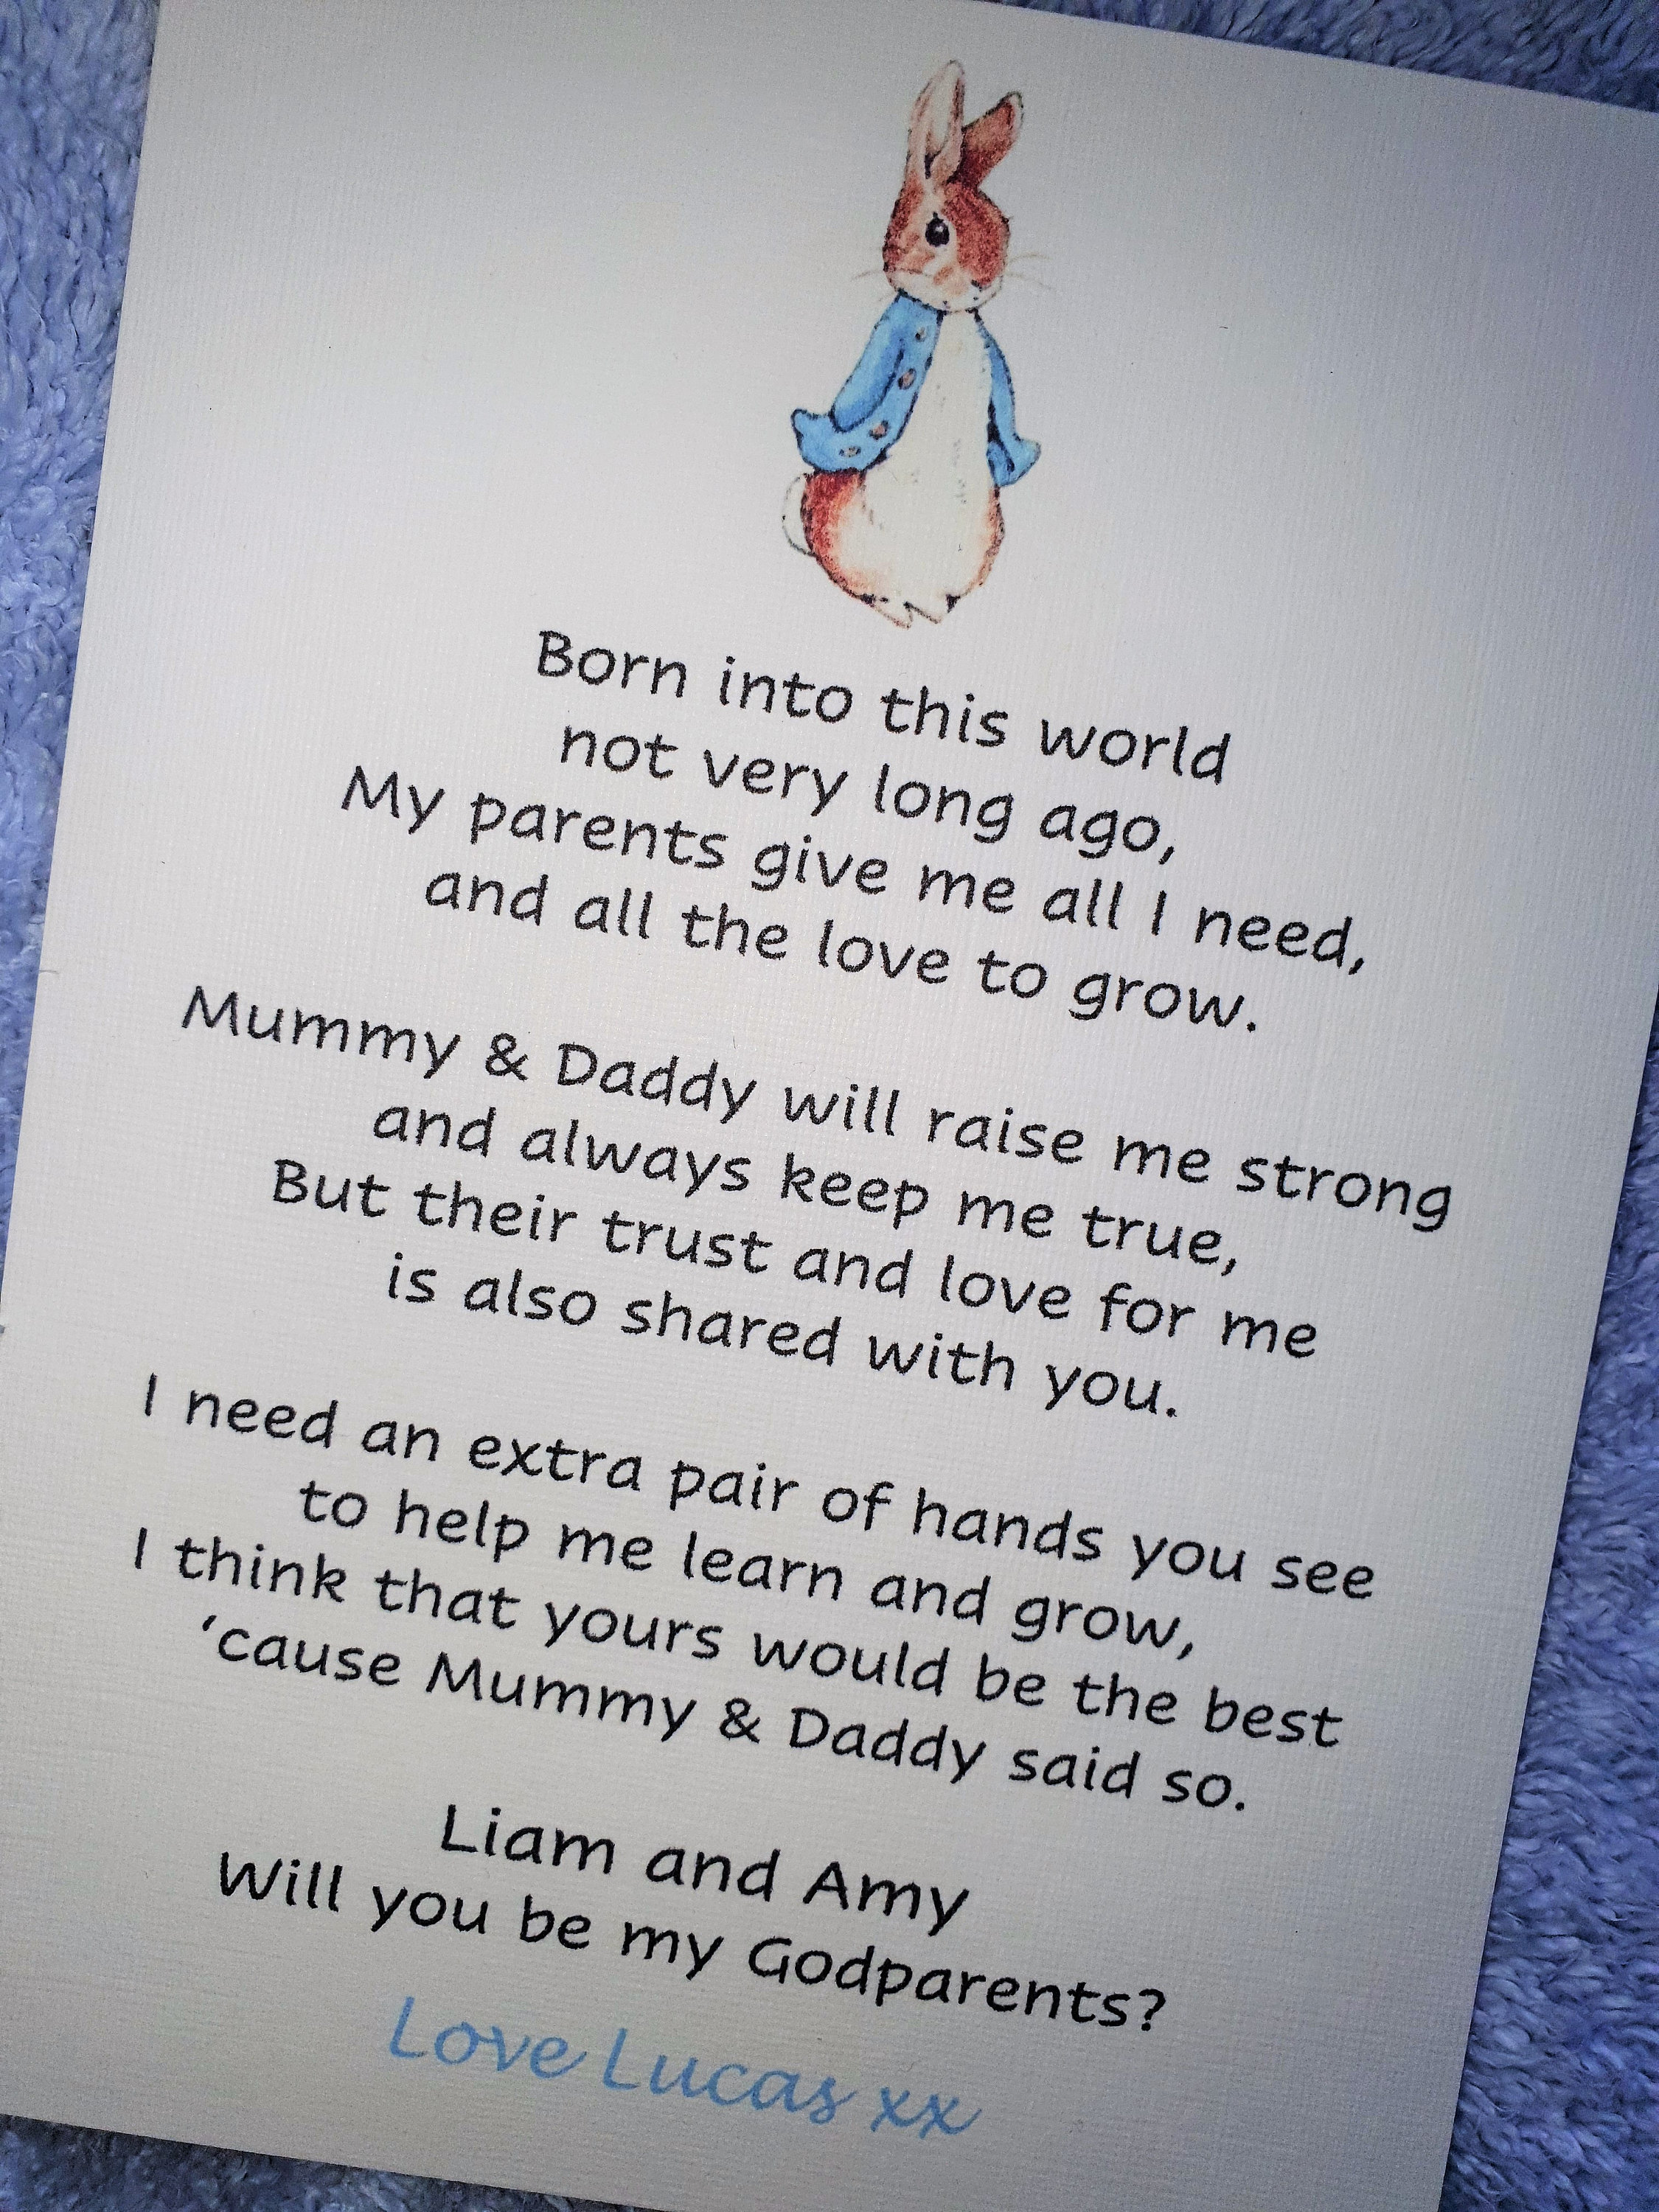 Born into this world
not very long ago,
My parents give me all I need,
and all the love to grow.
Mummy & Daddy will raise me strong
and always keep me true,
But their trust and love for me
is also shared with you.
I need an extra pair of hands you see
to help me learn and grow,
I think that yours would be the best
‘cause Mummy & Daddy said so.
Liam and Amy
Will you be my Godparents?
Love Lucas xx